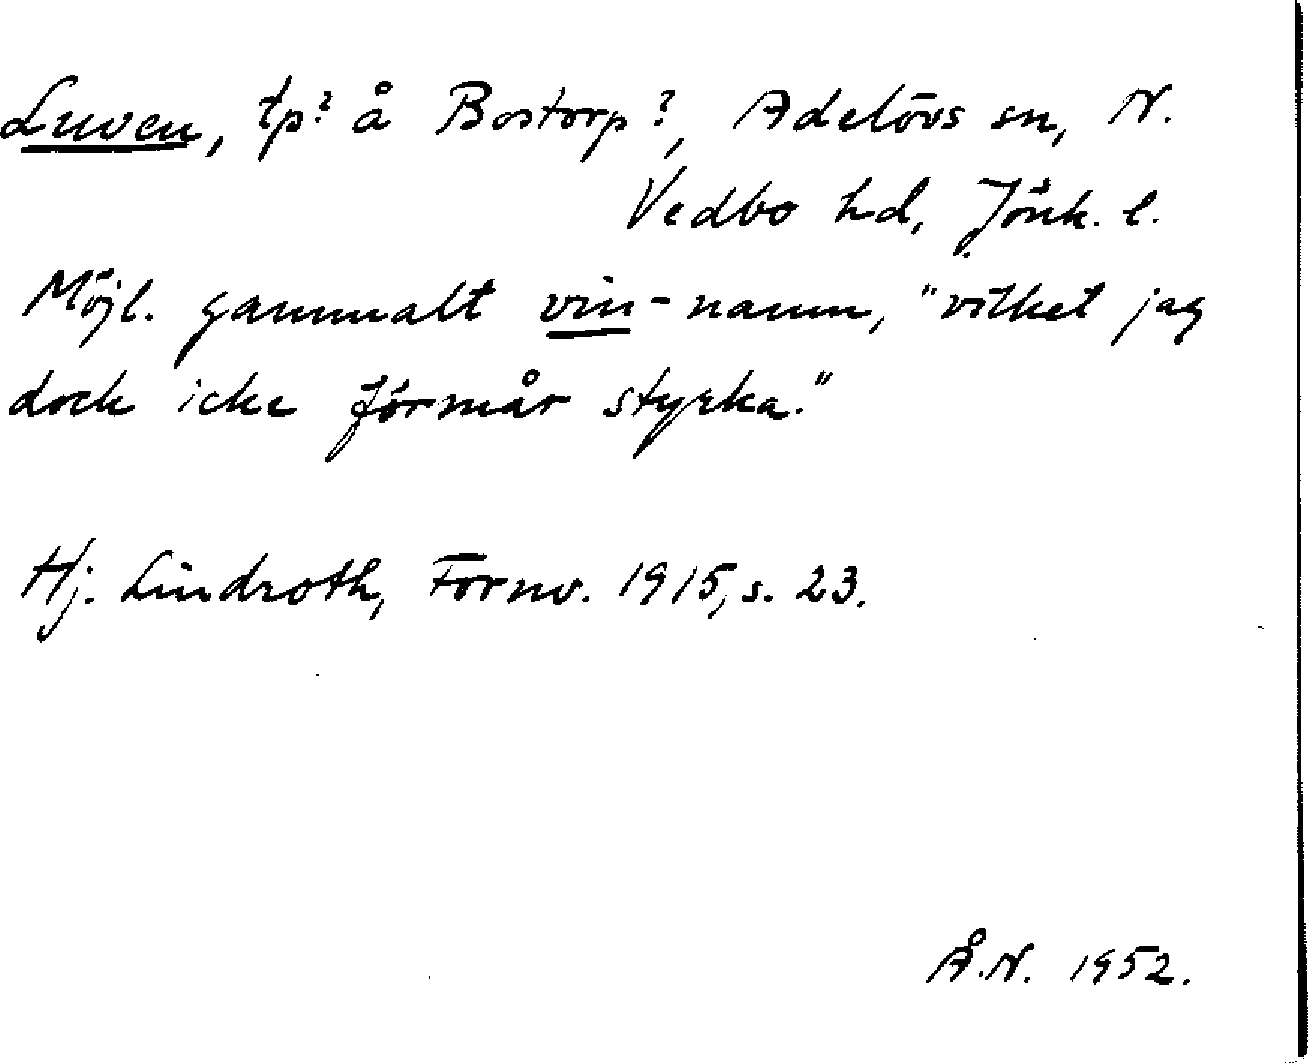 Luven, tp? å Bostorp?, Adelövs sn, N.
Vedbo hd, Jönk. l.
Möjl. gammalt vin-namn, "vilket jag
dock icke förmår styrka."
Hj. Lindroth, Fornv. 1915, s. 23.
Å.N. 1952.